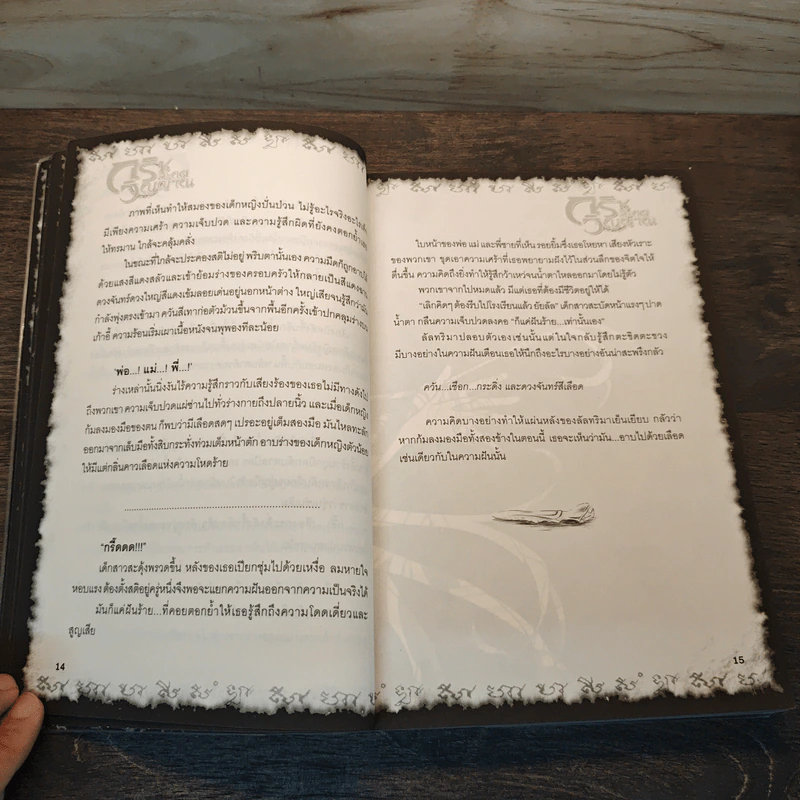 ภาพที่เห็นทำให้สมองของเด็กหญิงปั่นป่วน ไม่รู้อะไรจริงอะไรเท็จ
มีเพียงความเศร้า ความเจ็บปวด และความรู้สึกผิดที่ยังคงตอกย้ำเธอ
ให้ทรมาน ใกล้จะคลุ้มคลั่ง
ในขณะที่ใกล้จะประคองสติไม่อยู่ พริบตานั้นเอง ความมืดก็ถูกอาบไป
ด้วยแสงสีแดงสลัวและเข้าย้อมร่างของครอบครัวให้กลายเป็นสีแดงฉาน
ดวงจันทร์ดวงใหญ่สีแดงเข้มลอยเด่นอยู่นอกหน้าต่าง ใหญ่เสียจนรู้สึกว่ามัน
กำลังพุ่งตรงเข้ามา ควันสีเทาก่อตัวม้วนขึ้นจากพื้นอีกครั้งเข้าปกคลุมร่างบน
เก้าอี้ ความร้อนเริ่มเผาเนื้อหนังจนพุพองทีละน้อย
“พ่อ...! แม่...! พี่...!”
ร่างเหล่านั้นนิ่งงันไร้ความรู้สึกราวกับเสียงร้องของเธอไม่มีทางดังไป
ถึงพวกเขา ความเจ็บปวดแผ่ซ่านไปทั่วร่างกายถึงปลายนิ้ว และเมื่อเด็กหญิง
ก้มลงมองมือของตน ก็พบว่ามีเลือดสดๆ เปรอะอยู่เต็มสองมือ มันไหลทะลัก
ออกมาจากเล็บมือทั้งสิบกระทั่งท่วมเต็มหน้าตัก อาบร่างของเด็กหญิงตัวน้อย
ให้มีแต่กลิ่นคาวเลือดแห่งความโหดร้าย
“กรี๊ดดด!!!”
เด็กสาวสะดุ้งพรวดขึ้น หลังของเธอเปียกชุ่มไปด้วยเหงื่อ ลมหายใจ
หอบแรง ต้องตั้งสติอยู่ครู่หนึ่งจึงพอจะแยกความฝันออกจากความเป็นจริงได้
มันก็แค่ฝันร้าย...ที่คอยตอกย้ำให้เธอรู้สึกถึงความโดดเดี่ยวและ
สูญเสีย
14
ใบหน้าของพ่อ แม่ และพี่ชายที่เห็น รอยยิ้มซึ่งเธอโหยหา เสียงหัวเราะ
ของพวกเขา ขุดเอาความเศร้าที่เธอพยายามฝังไว้ในส่วนลึกของจิตใจให้
ตื่นขึ้น ความคิดถึงยิ่งทำให้รู้สึกว้าเหว่จนน้ำตาไหลออกมาโดยไม่รู้ตัว
พวกเขาจากไปหมดแล้ว มีแต่เธอที่ต้องมีชีวิตอยู่ให้ได้
“เลิกคิดๆ ต้องรีบไปโรงเรียนแล้ว ยัยลัล” เด็กสาวสะบัดหน้าแรงๆ ปาด
น้ำตา กลืนความเจ็บปวดลงคอ “ก็แค่ฝันร้าย...เท่านั้นเอง”
ลัลทริมาปลอบตัวเองเช่นนั้น แต่ในใจกลับรู้สึกตะขิดตะขวง
มีบางอย่างในความฝันเตือนเธอให้นึกถึงอะไรบางอย่างอันน่าสะพรึงกลัว
ควัน...เชือก...กระดิ่ง และดวงจันทร์สีเลือด
ความคิดบางอย่างทำให้แผ่นหลังของลัลทริมาเย็นเฉียบ กลัวว่า
หากก้มลงมองมือทั้งสองข้างในตอนนี้ เธอจะเห็นว่ามัน...อาบไปด้วยเลือด
เช่นเดียวกับในความฝันนั้น
15